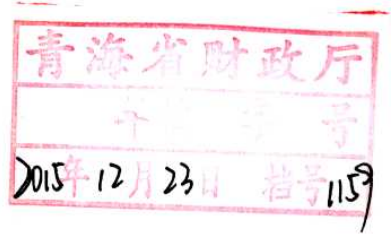 青海省财政厅
字 号
2015年12月23日 档号1159